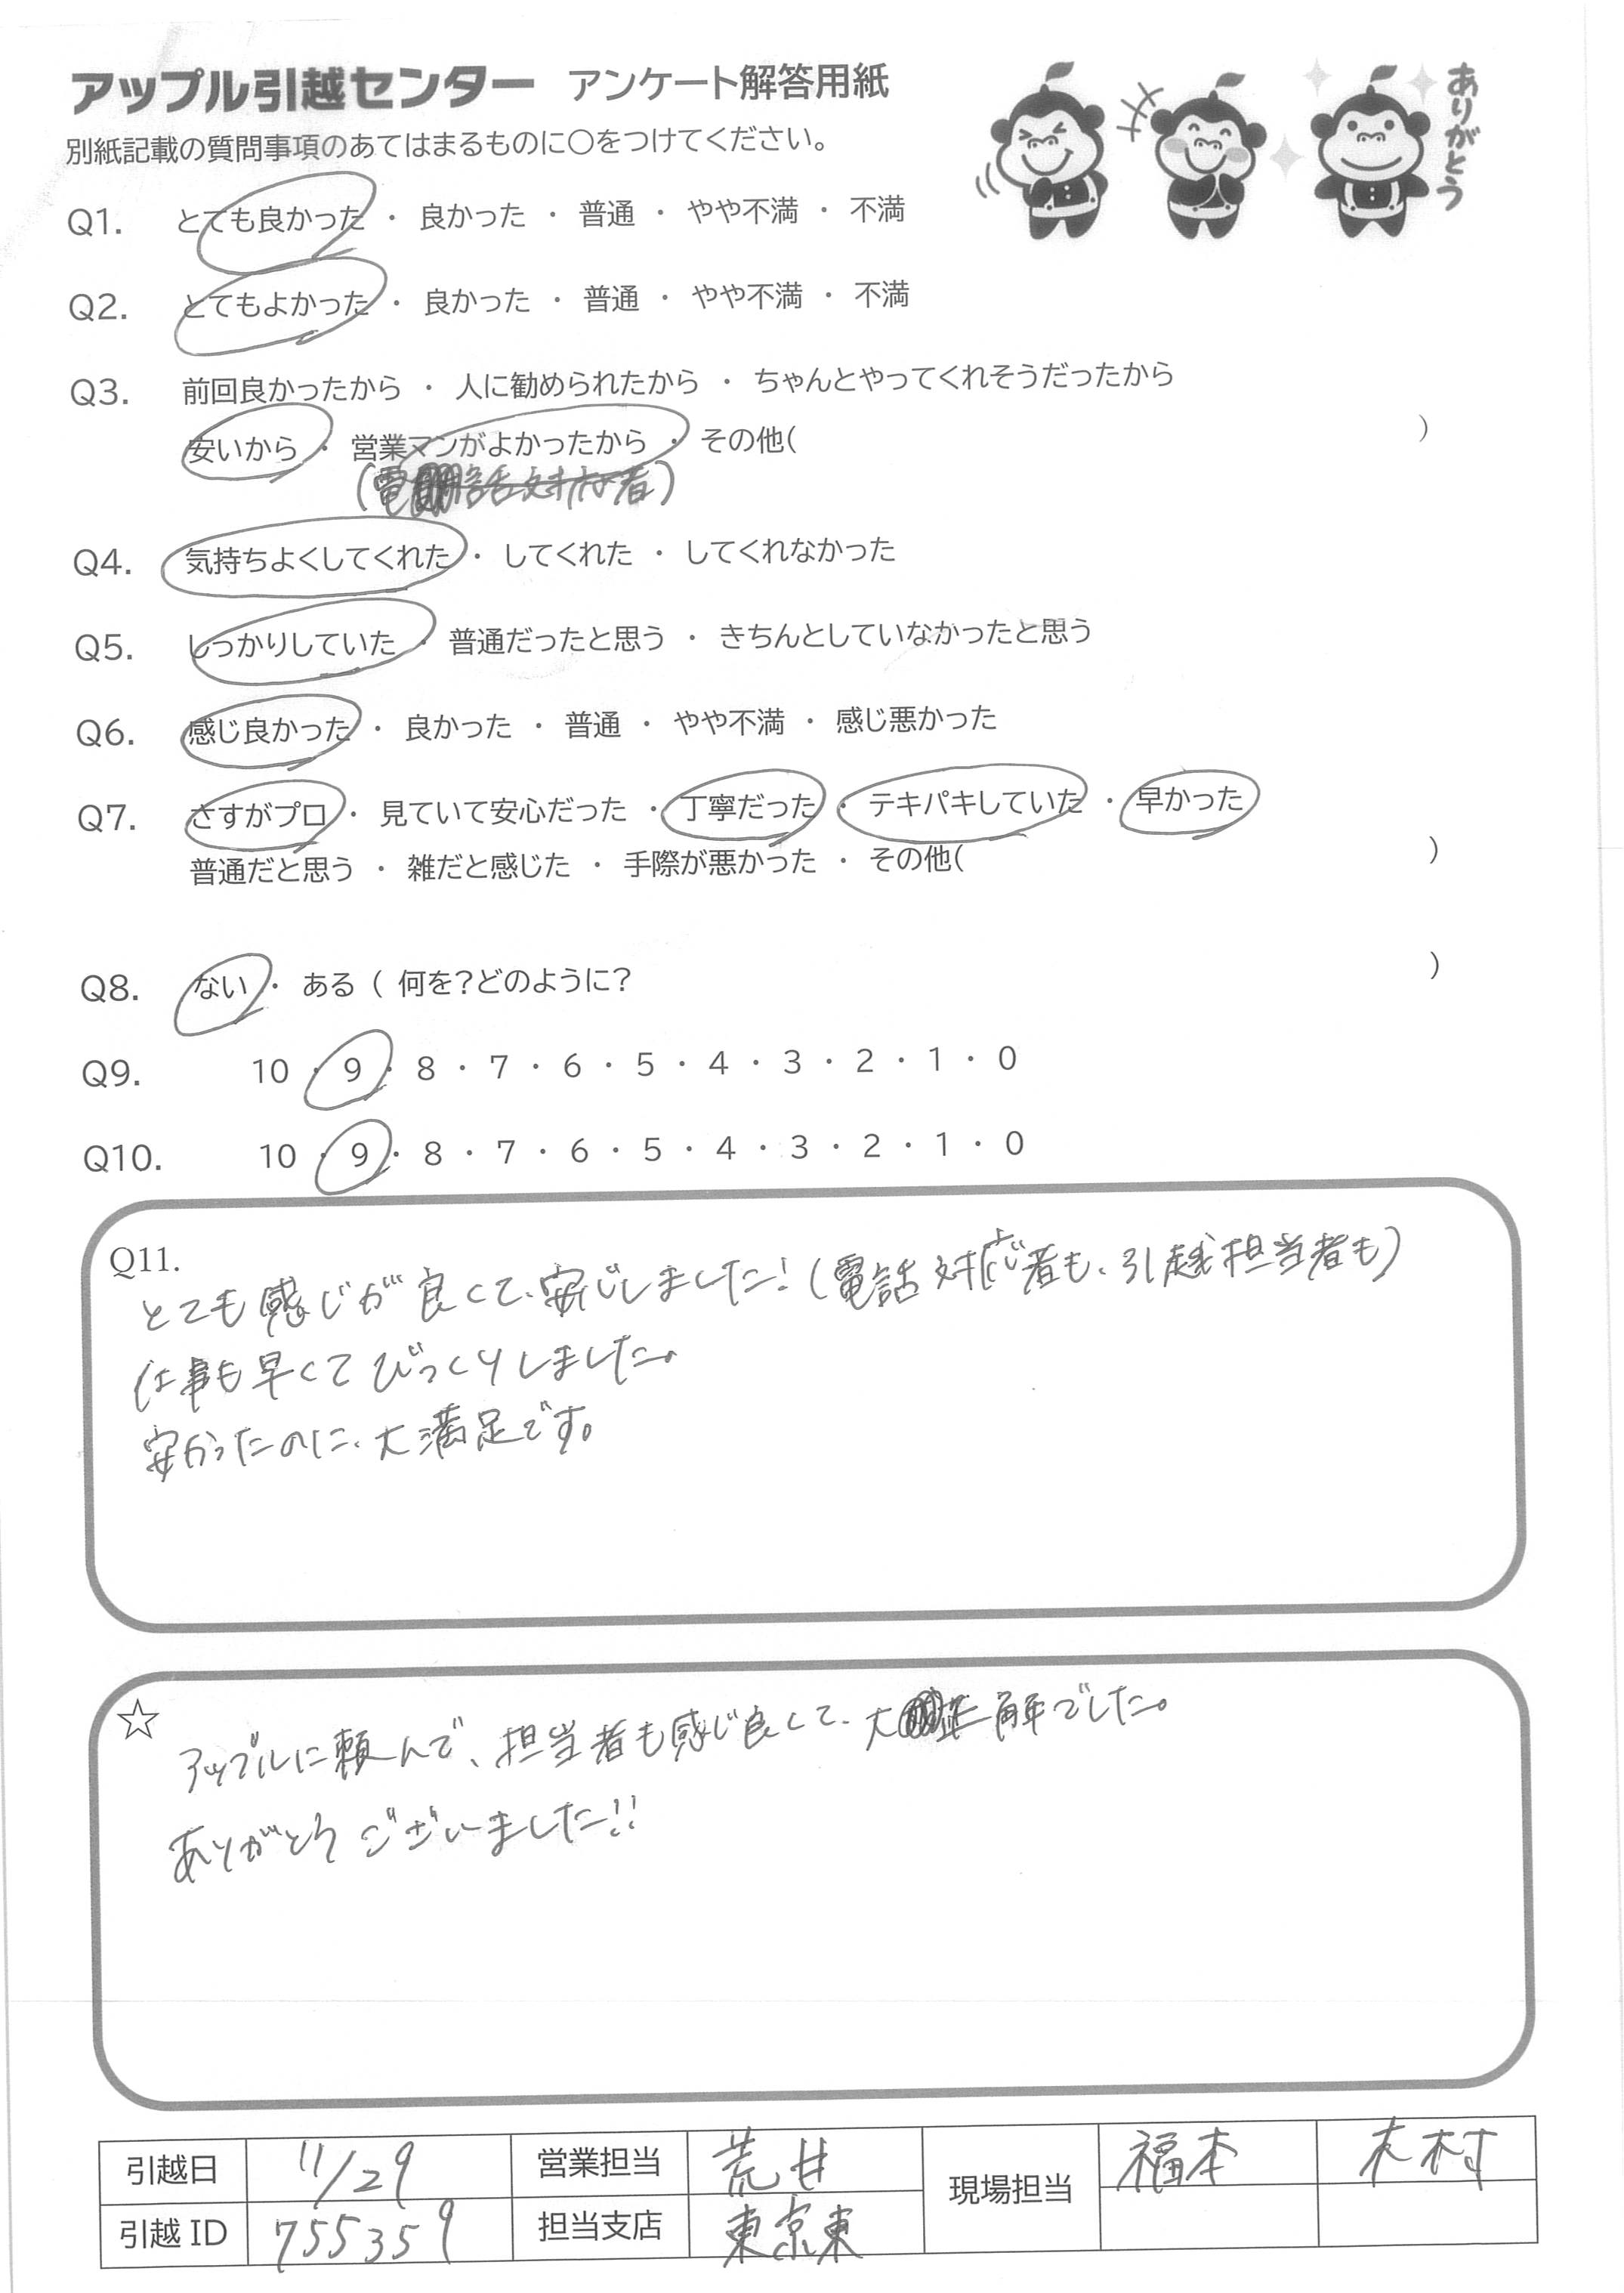 アップル引越センター アンケート解答用紙
ありがとう
別紙記載の質問事項のあてはまるものに○をつけてください。
Q1. とても良かった ・ 良かった ・ 普通 ・ やや不満 ・ 不満
Q2. とてもよかった ・ 良かった ・ 普通 ・ やや不満 ・ 不満
Q3. 前回良かったから ・ 人に勧められたから ・ ちゃんとやってくれそうだったから
安いから ・ 営業マンがよかったから ・ その他( )
(電話対応者)
Q4. 気持ちよくしてくれた ・ してくれた ・ してくれなかった
Q5. しっかりしていた ・ 普通だったと思う ・ きちんとしていなかったと思う
Q6. 感じ良かった ・ 良かった ・ 普通 ・ やや不満 ・ 感じ悪かった
Q7. さすがプロ ・ 見ていて安心だった ・ 丁寧だった ・ テキパキしていた ・ 早かった
普通だと思う ・ 雑だと感じた ・ 手際が悪かった ・ その他( )
Q8. ない ・ ある ( 何を?どのように? )
Q9. 10 ・ 9 ・ 8 ・ 7 ・ 6 ・ 5 ・ 4 ・ 3 ・ 2 ・ 1 ・ 0
Q10. 10 ・ 9 ・ 8 ・ 7 ・ 6 ・ 5 ・ 4 ・ 3 ・ 2 ・ 1 ・ 0
Q11.
とても感じが良くて、安心しました!(電話対応者も、引越担当者も)
仕事も早くてびっくりしました。
安かったのに、大満足です。
☆
アップルに頼んで、担当者も感じ良くて、大正解でした。
ありがとうございました!!
引越日 11/29 営業担当 荒井 現場担当 福本 木村
引越ID 755359 担当支店 東京東